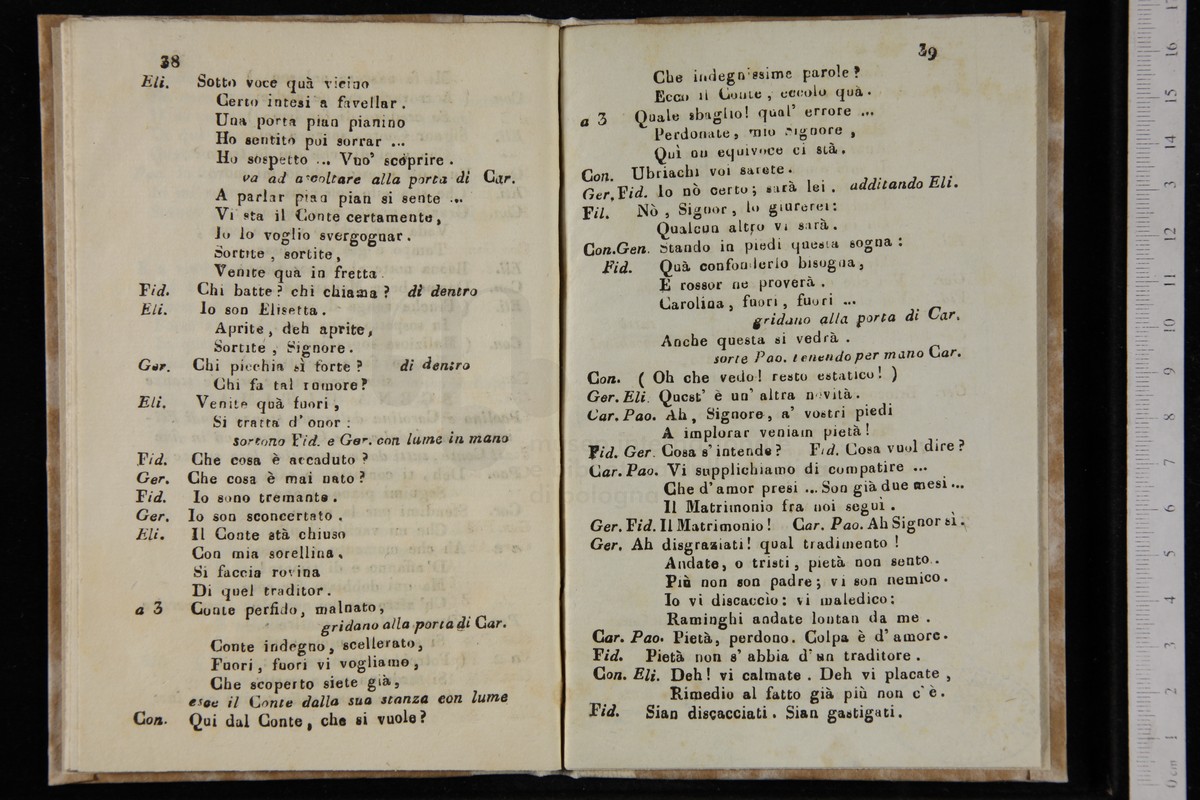 38
Eli. Sotto voce quà vicino
Certo intesi a favellar.
Una porta pian pianino
Ho sentito poi sorrar ...
Ho sospetto ... Vuo' scoprire.
va ad ascoltare alla porta di Car.
A parlar pian pian si sente ...
Vi sta il Conte certamente,
Io lo voglio svergognar.
Sortite, sortite,
Venite quà in fretta.
Fid. Chi batte? chi chiama? di dentro
Eli. Io son Elisetta.
Aprite, deh aprite,
Sortite, Signore.
Ger. Chi picchia sì forte? di dentro
Chi fa tal romore?
Eli. Venite quà fuori,
Si tratta d'onor:
sortono Fid. e Ger. con lume in mano
Fid. Che cosa è accaduto?
Ger. Che cosa è mai nato?
Fid. Io sono tremante.
Ger. Io son sconcertato.
Eli. Il Conte stà chiuso
Con mia sorellina,
Si faccia rovina
Di quel traditor.
a 3 Conte perfido, malnato,
gridano alla porta di Car.
Conte indegno, scellerato,
Fuori, fuori vi vogliamo,
Che scoperto siete già,
esce il Conte dalla sua stanza con lume
Con. Qui dal Conte, che si vuole?
39
Che indegnissime parole?
Ecco il Conte, eccolo quà.
a 3 Quale sbaglio! qual' errore ...
Perdonate, mio signore,
Quì un equivoce ci stà.
Con. Ubriachi voi sarete.
Ger. Fid. Io nò certo; sarà lei. additando Eli.
Fil. Nò, Signor, lo giurerei:
Qualcun altro vi sarà.
Con. Gen. Stando in piedi questa sogna:
Fid. Quà confonderlo bisogna,
E rossor ne proverà.
Carolina, fuori, fuori ...
gridano alla porta di Car.
Anche questa si vedrà.
sorte Pao. tenendo per mano Car.
Con. ( Oh che vedo! resto estatico! )
Ger. Eli. Quest' è un' altra novità.
Car. Pao. Ah, Signore, a' vostri piedi
A implorar veniam pietà!
Fid. Ger. Cosa s'intende? Fid. Cosa vuol dire?
Car. Pao. Vi supplichiamo di compatire ...
Che d'amor presi ... Son già due mesi ...
Il Matrimonio fra noi seguì.
Ger. Fid. Il Matrimonio! Car. Pao. Ah Signor sì.
Ger. Ah disgraziati! qual tradimento!
Andate, o tristi, pietà non sento.
Più non son padre; vi son nemico.
Io vi discaccio: vi maledico:
Raminghi andate lontan da me.
Car. Pao. Pietà, perdono. Colpa è d'amore.
Fid. Pietà non s'abbia d'un traditore.
Con. Eli. Deh! vi calmate. Deh vi placate,
Rimedio al fatto già più non c'è.
Fid. Sian discacciati. Sian gastigati.